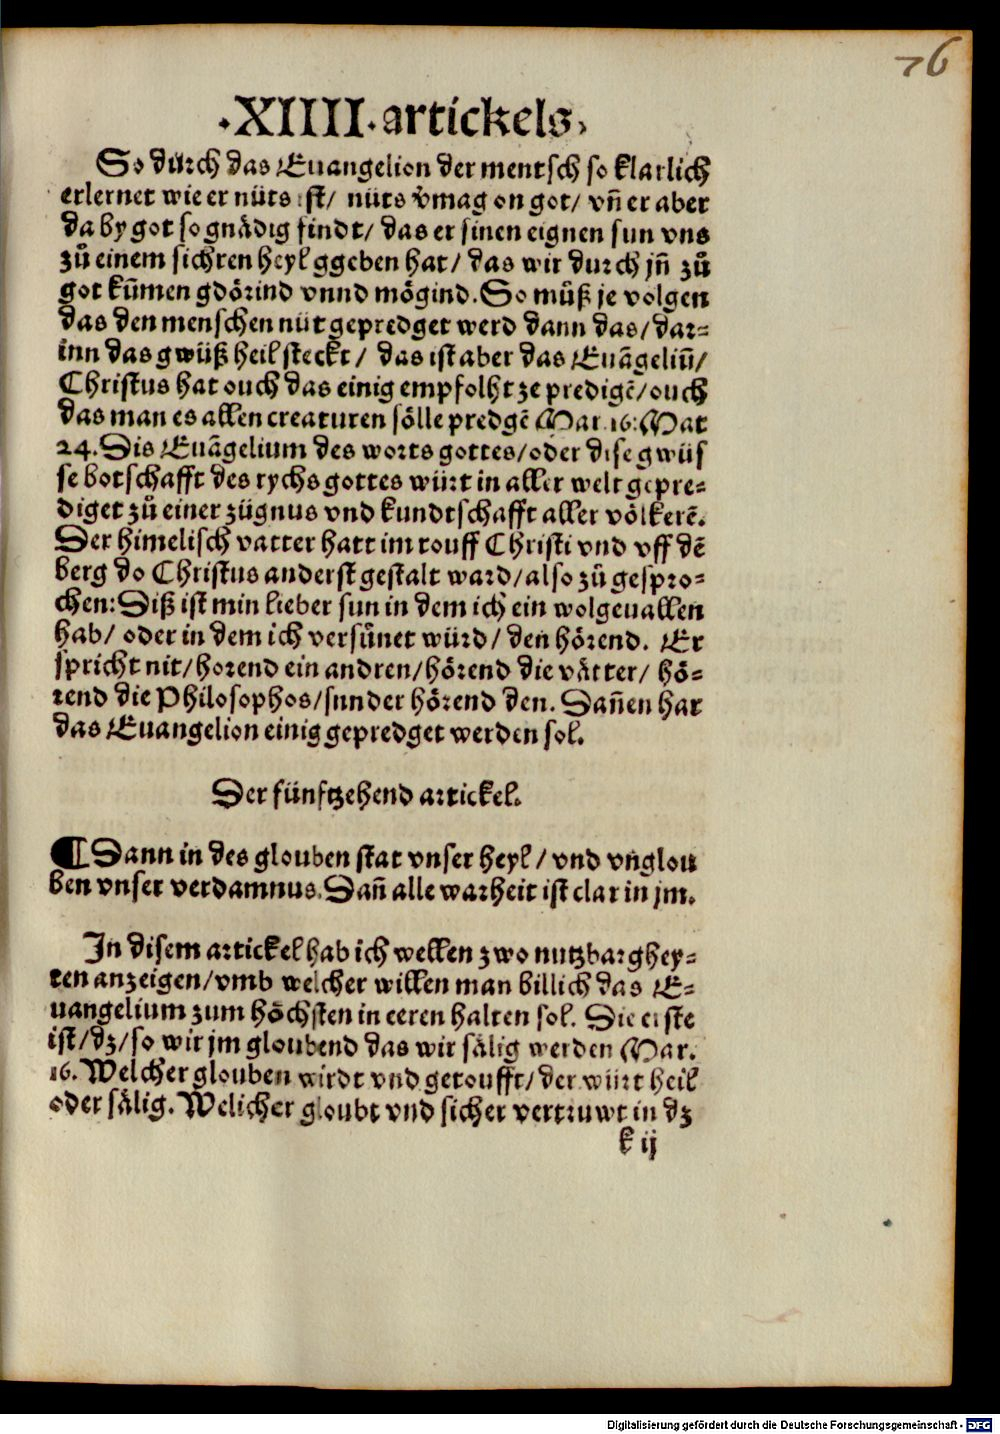 76
·XIIII·artickels,
So durch das Euangelion der mentsch so klarlich
erlernet wie er nüts ist/ nüts v̊mag on got/ vñ er aber
da by got so gnådig findt/ das er sinen eignen sun vns
zů einem sichren heyl ggeben hat/ das wir durch jñ zů
got kům̃en gdörind vnnd mögind. So můß je volgen
das den menschen nüt gepredget werd dann das/ dar⸗
inn das gwüß heil steckt/ das ist aber das Euãgeliũ/
Christus hat ouch das einig empfolht ze predigẽ/ ouch
das man es allen creaturen sölle predgẽ Mar. 16: Mat
24. Dis Euãgelium des worts gottes/ oder dise gwüs
se botschafft des rychs gottes würt in aller welt gepre⸗
diget zů einer zügnus vnd kundtschafft aller völkerẽ.
Der himelisch vatter hatt im touff Christi vnd vff dẽ
berg do Christus anderst gestalt ward/ also zů gespro⸗
chen: Diß ist min lieber sun in dem ich ein wolgeuallen
hab/ oder in dem ich versůnet würd/ den hörend. Er
spricht nit/ horend ein andren/ hörend die våtter/ hö⸗
rend die Philosophos/ sunder hörend den. Dañen har
das Euangelion einig gepredget werden sol.
Der fünftzehend artickel.
¶ Dann in des glouben stat vnser heyl/ vnd vnglou
ben vnser verdamnus. Dañ alle warheit ist clar in jm.
In disem artickel hab ich wellen zwo nutzbarghey⸗
ten anzeigen/ vmb welcher willen man billich das E⸗
uangelium zum höchsten in eeren halten sol. Die erste
ist/ dz/ so wir jm gloubend das wir sålig werden Mar.
16. Welcher glouben wirdt vnd getoufft/ der würt heil
oder sålig. Welicher gloubt vnd sicher vertruwt in dz
k ij
Digitalisierung gefördert durch die Deutsche Forschungsgemeinschaft - DFG